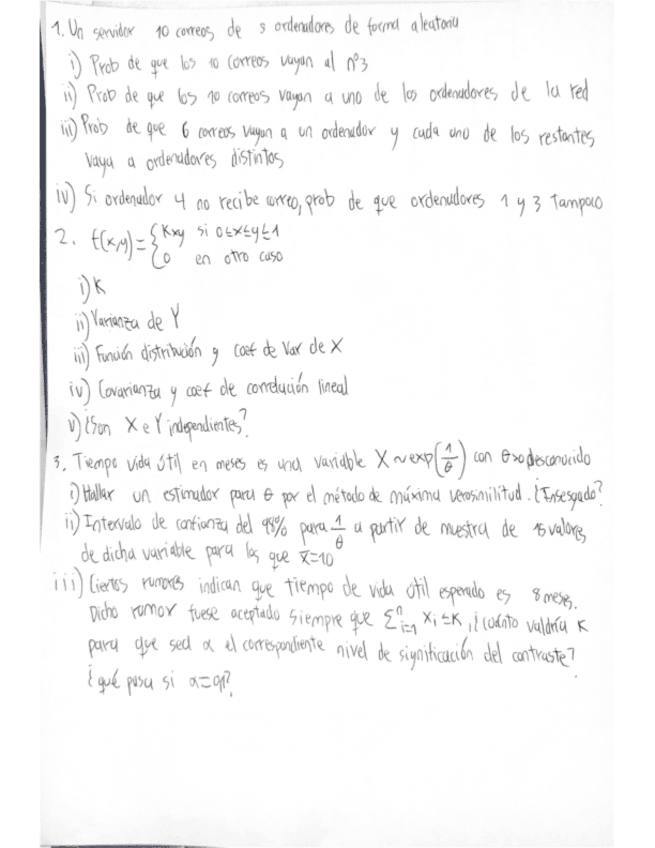 1. Un servidor 10 correos de 5 ordenadores de forma aleatoria
i) Prob de que los 10 correos vayan al nº3
ii) Prob de que los 10 correos vayan a uno de los ordenadores de la red
iii) Prob de que 6 correos vayan a un ordenador y cada uno de los restantes
vaya a ordenadores distintos
iv) Si ordenador 4 no recibe correo, prob de que ordenadores 1 y 3 tampoco
2. f(x,y)={Kxy si 0≤x≤y≤1
0 en otro caso
i) K
ii) Varianza de Y
iii) Función distribución y coef de Var de X
iv) Covarianza y coef de correlación lineal
v) ¿Son X e Y independientes?
3. Tiempo vida útil en meses es una variable X~exp(1/θ) con θ>0 desconocido
i) Hallar un estimador para θ por el método de máxima verosimilitud. ¿Insesgado?
ii) Intervalo de confianza del 98% para 1/θ a partir de muestra de 15 valores
de dicha variable para los que x̄=10
iii) Ciertos rumores indican que tiempo de vida útil esperado es 8 meses.
Dicho rumor fuese aceptado siempre que Σⁿᵢ₌₁ xᵢ≤K, ¿cuánto valdría K
para que sea α el correspondiente nivel de significación del contraste?
¿qué pasa si α=0,1?